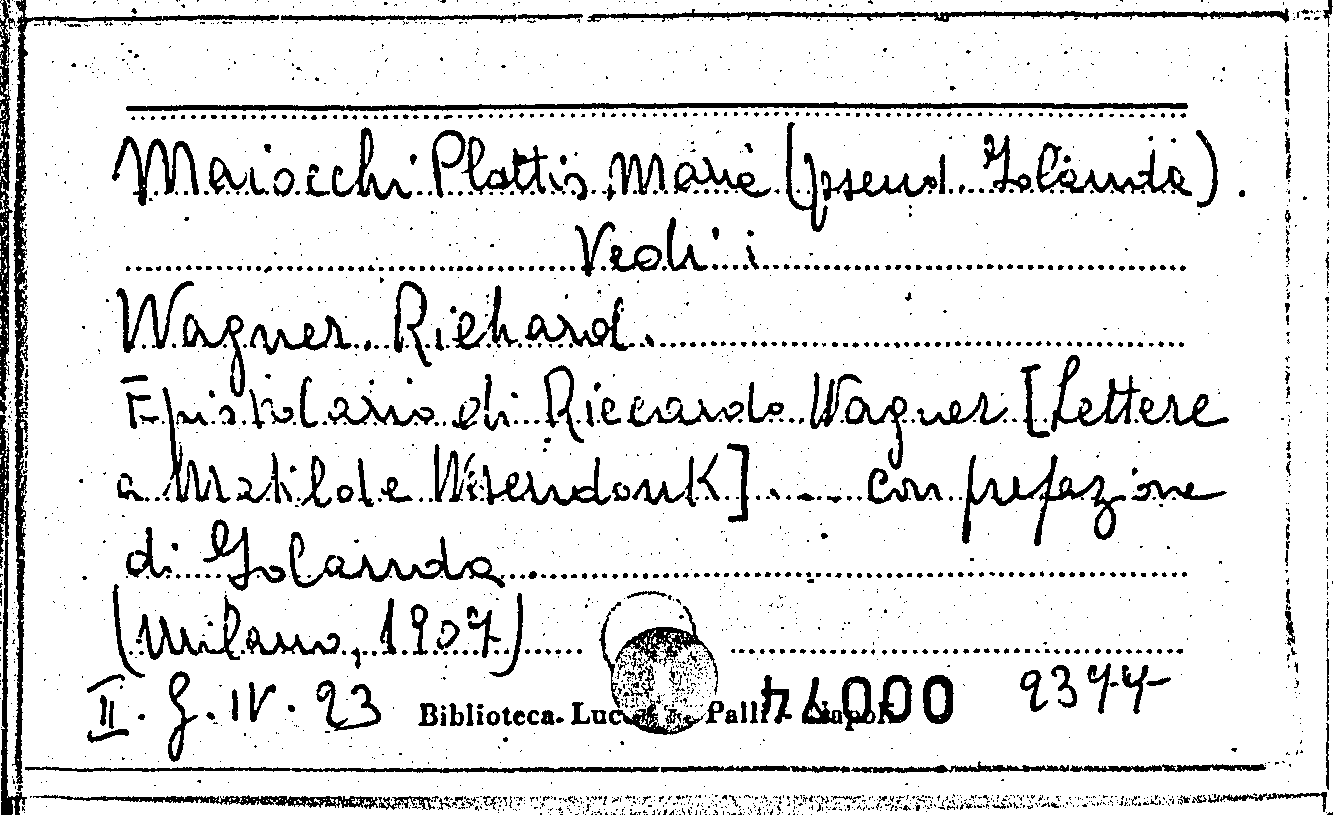 Maiocchi Plattis, Maria (pseud. Jolanda).
Vedi i
Wagner. Richard.
Epistolario di Riccardo Wagner [Lettere
a Matilde Wesendonk] . - - con prefazione
di Jolanda
(Milano, 1907)
II. G. IV. 23 Biblioteca Palli - Napoli 00074 2377